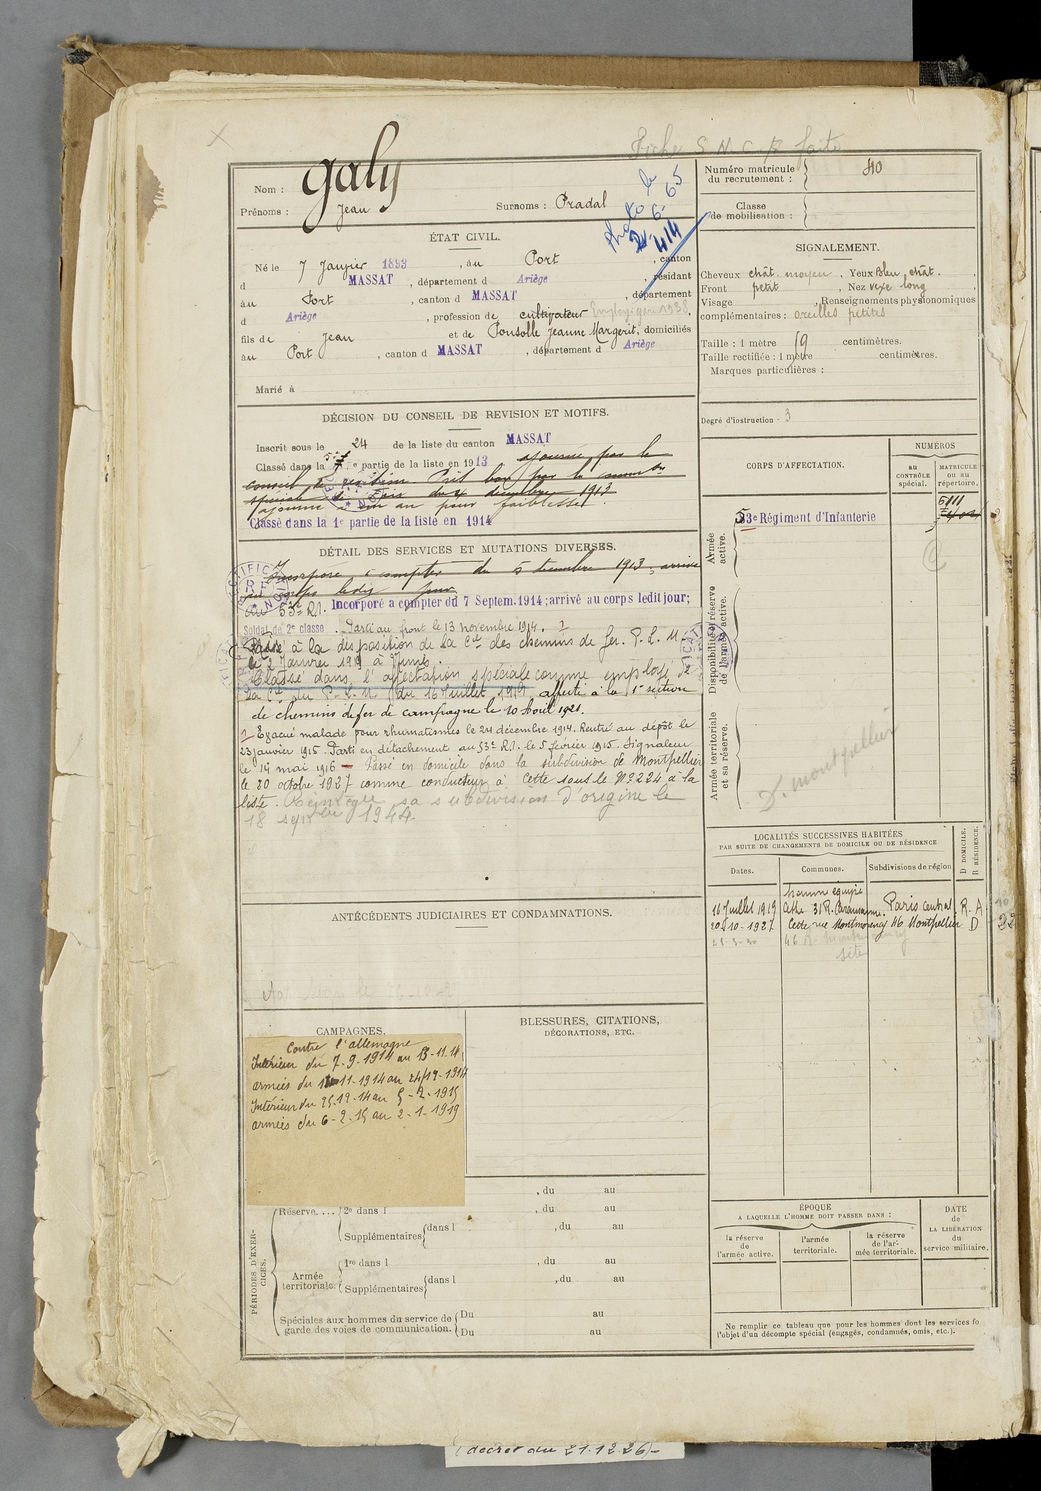 Fiche S.N.C.F. faite
Nom : Galy
Prénoms : Jean
Surnoms : Pradal
Photo le
21-6-65
414
ÉTAT CIVIL.
Né le 7 Janvier 1893, au Port, canton
d MASSAT, département d Ariège, résidant
au Port, canton d MASSAT, département
d Ariège, profession de cultivateur
fils de Jean et de Ponsolle Jeanne Margerit, domiciliés
au Port, canton d MASSAT, département d Ariège
Marié à
DÉCISION DU CONSEIL DE REVISION ET MOTIFS.
Inscrit sous le 24 de la liste du canton MASSAT
Classé dans la 5e partie de la liste en 1913 ajourné par le
conseil de revision Pris bon par la comm on
spéciale de Foix du 4 décembre 1913
ajourné à un an pour faiblesse
Classé dans la 1e partie de la liste en 1914
DÉTAIL DES SERVICES ET MUTATIONS DIVERSES.
Incorporé à compter du 5 décembre 1913, arrivé
au corps ledit jour
au 53e R.I. Incorporé a compter du 7 Septem. 1914; arrivé au corps ledit jour;
Soldat de 2e classe. Parti au front le 13 novembre 1914.
Passé à la disposition de la Cie des chemins de fer. P. L. M.
le 2 Janvier 1919 à Nîmes.
Classé dans l'affectation spéciale comme employé de
la Cie du P.L.M. du 16 Juillet 1919, affecté à la 1e section
de chemins de fer de campagne le 10 Août 1921.
Evacué malade pour rhumatismes le 24 décembre 1914. Rentré au dépôt le
23 janvier 1915. Parti en détachement au 53e R.I. le 5 février 1915. Signaleur
le 19 mai 1916 — Passé en domicile dans la subdivision de Montpellier
le 20 octobre 1927 comme conducteur à Cette sous le N° 2224 à la
liste. Réintégré sa subdivision d'origine le
18 septbre 1944.
ANTÉCÉDENTS JUDICIAIRES ET CONDAMNATIONS.
CAMPAGNES.
Contre l'allemagne
Intérieur du 7-9-1914 au 13-11-14
armées du 11-1914 au 24/12-1914
Intérieur du 25-12-14 au 5-2-1915
armées du 6-2-15 au 2-1-1919
BLESSURES, CITATIONS,
DÉCORATIONS, ETC.
PÉRIODES D'EXERCICES.
, du au
Réserve.... 2e dans l , du au
Supplémentaires dans l , du au
Armée territoriale. 1re dans l , du au
Supplémentaires dans l , du au
Spéciales aux hommes du service de Du au
garde des voies de communication. Du au
Numéro matricule
du recrutement : 40
Classe
de mobilisation :
SIGNALEMENT.
Cheveux chât. moyen, Yeux Bleu chât.
Front petit, Nez vexe long
Visage , Renseignements physionomiques
complémentaires : oreilles petites
Taille : 1 mètre 69 centimètres.
Taille rectifiée : 1 mètre centimètres.
Marques particulières :
Degré d'instruction - 3
CORPS D'AFFECTATION.
NUMÉROS
au
CONTRÔLE
spécial.
MATRICULE
OU AU
répertoire.
Armée
active.
53e Régiment d'Infanterie
5111
Disponibilité et réserve
de l'armée active.
Armée territoriale
et sa réserve.
D. Montpellier
LOCALITÉS SUCCESSIVES HABITÉES
PAR SUITE DE CHANGEMENTS DE DOMICILE OU DE RÉSIDENCE
D DOMICILE.
R RÉSIDENCE.
Dates.
Communes.
Subdivisions de région
homme équipe
16 Juillet 1919 Cette 31 R. Caramanne. Paris Central R. A
20-10-1927 Cette rue Montmorency 46 Montpellier D
Sète
ÉPOQUE
A LAQUELLE L'HOMME DOIT PASSER DANS :
la réserve
de
l'armée active.
l'armée
territoriale.
la réserve
de l'ar-
mée territoriale.
DATE
de
LA LIBÉRATION
du
service militaire.
Ne remplir ce tableau que pour les hommes dont les services fo
l'objet d'un décompte spécial (engagés, condamnés, omis, etc.).
(décret du 21.12.26)-